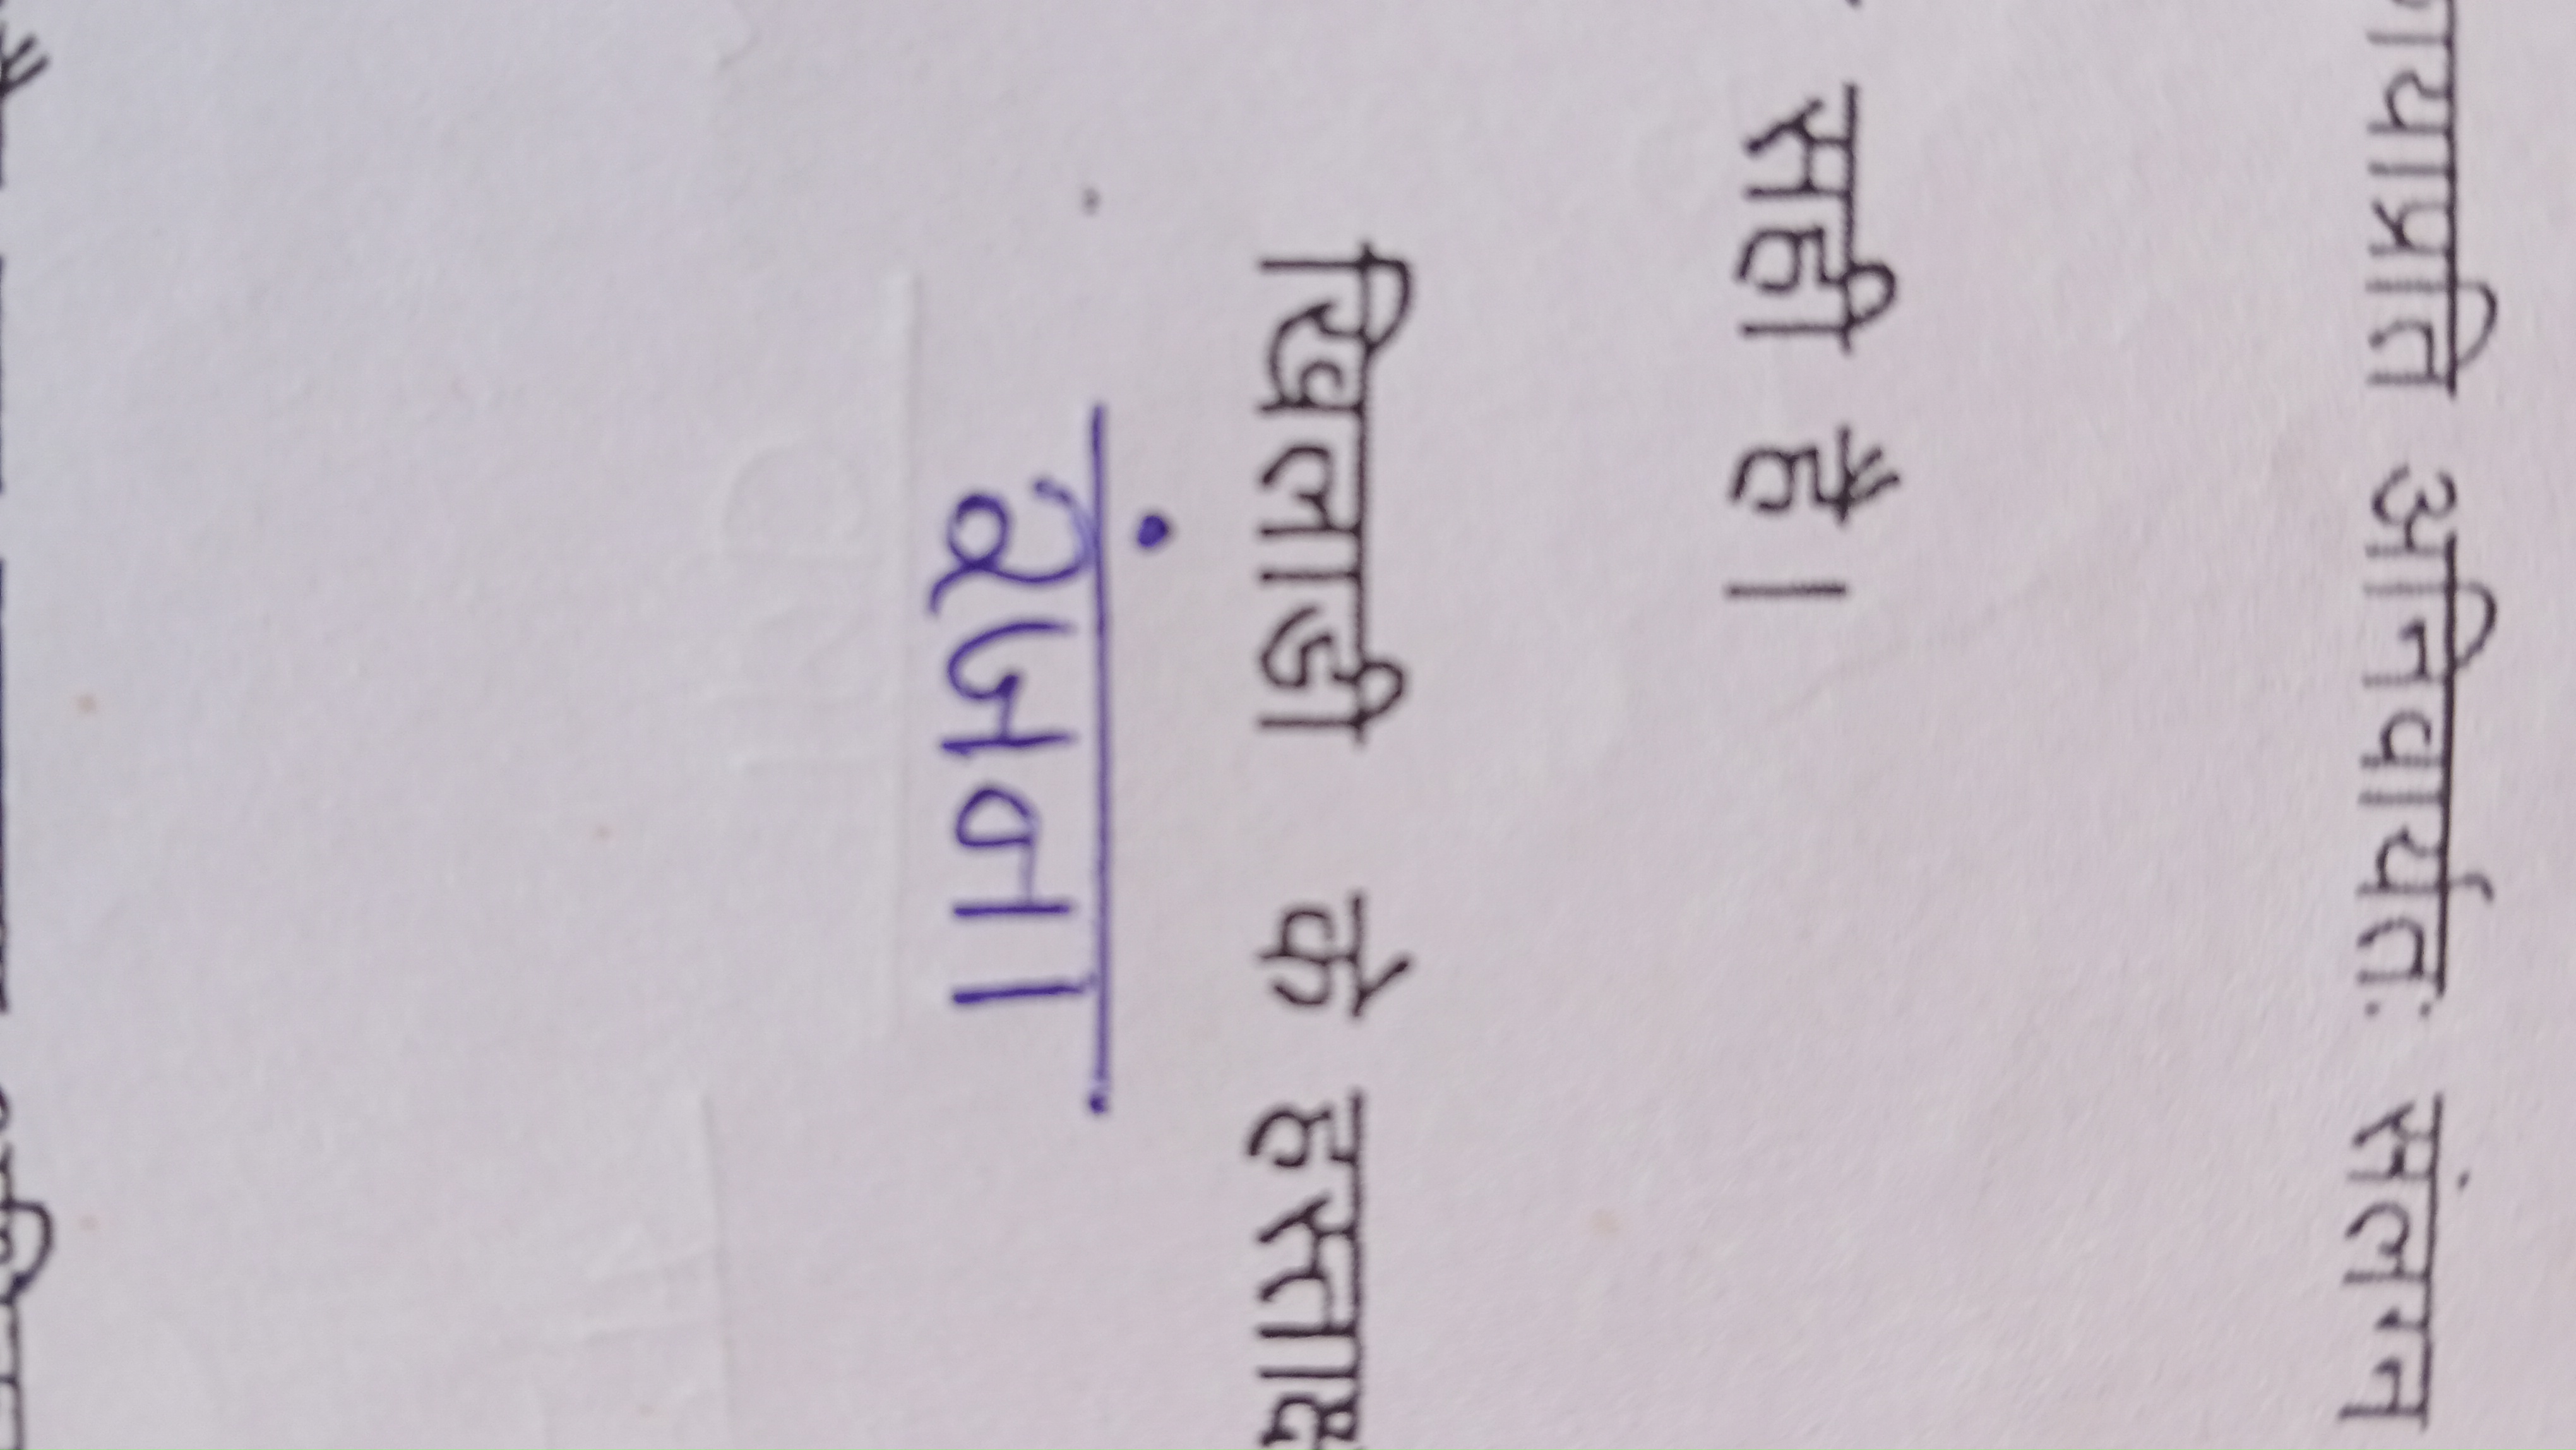 ायाप्रति अनिवार्यतः संलग्न
सही है।
खिलाडी के हस्ताक्ष
रंजना